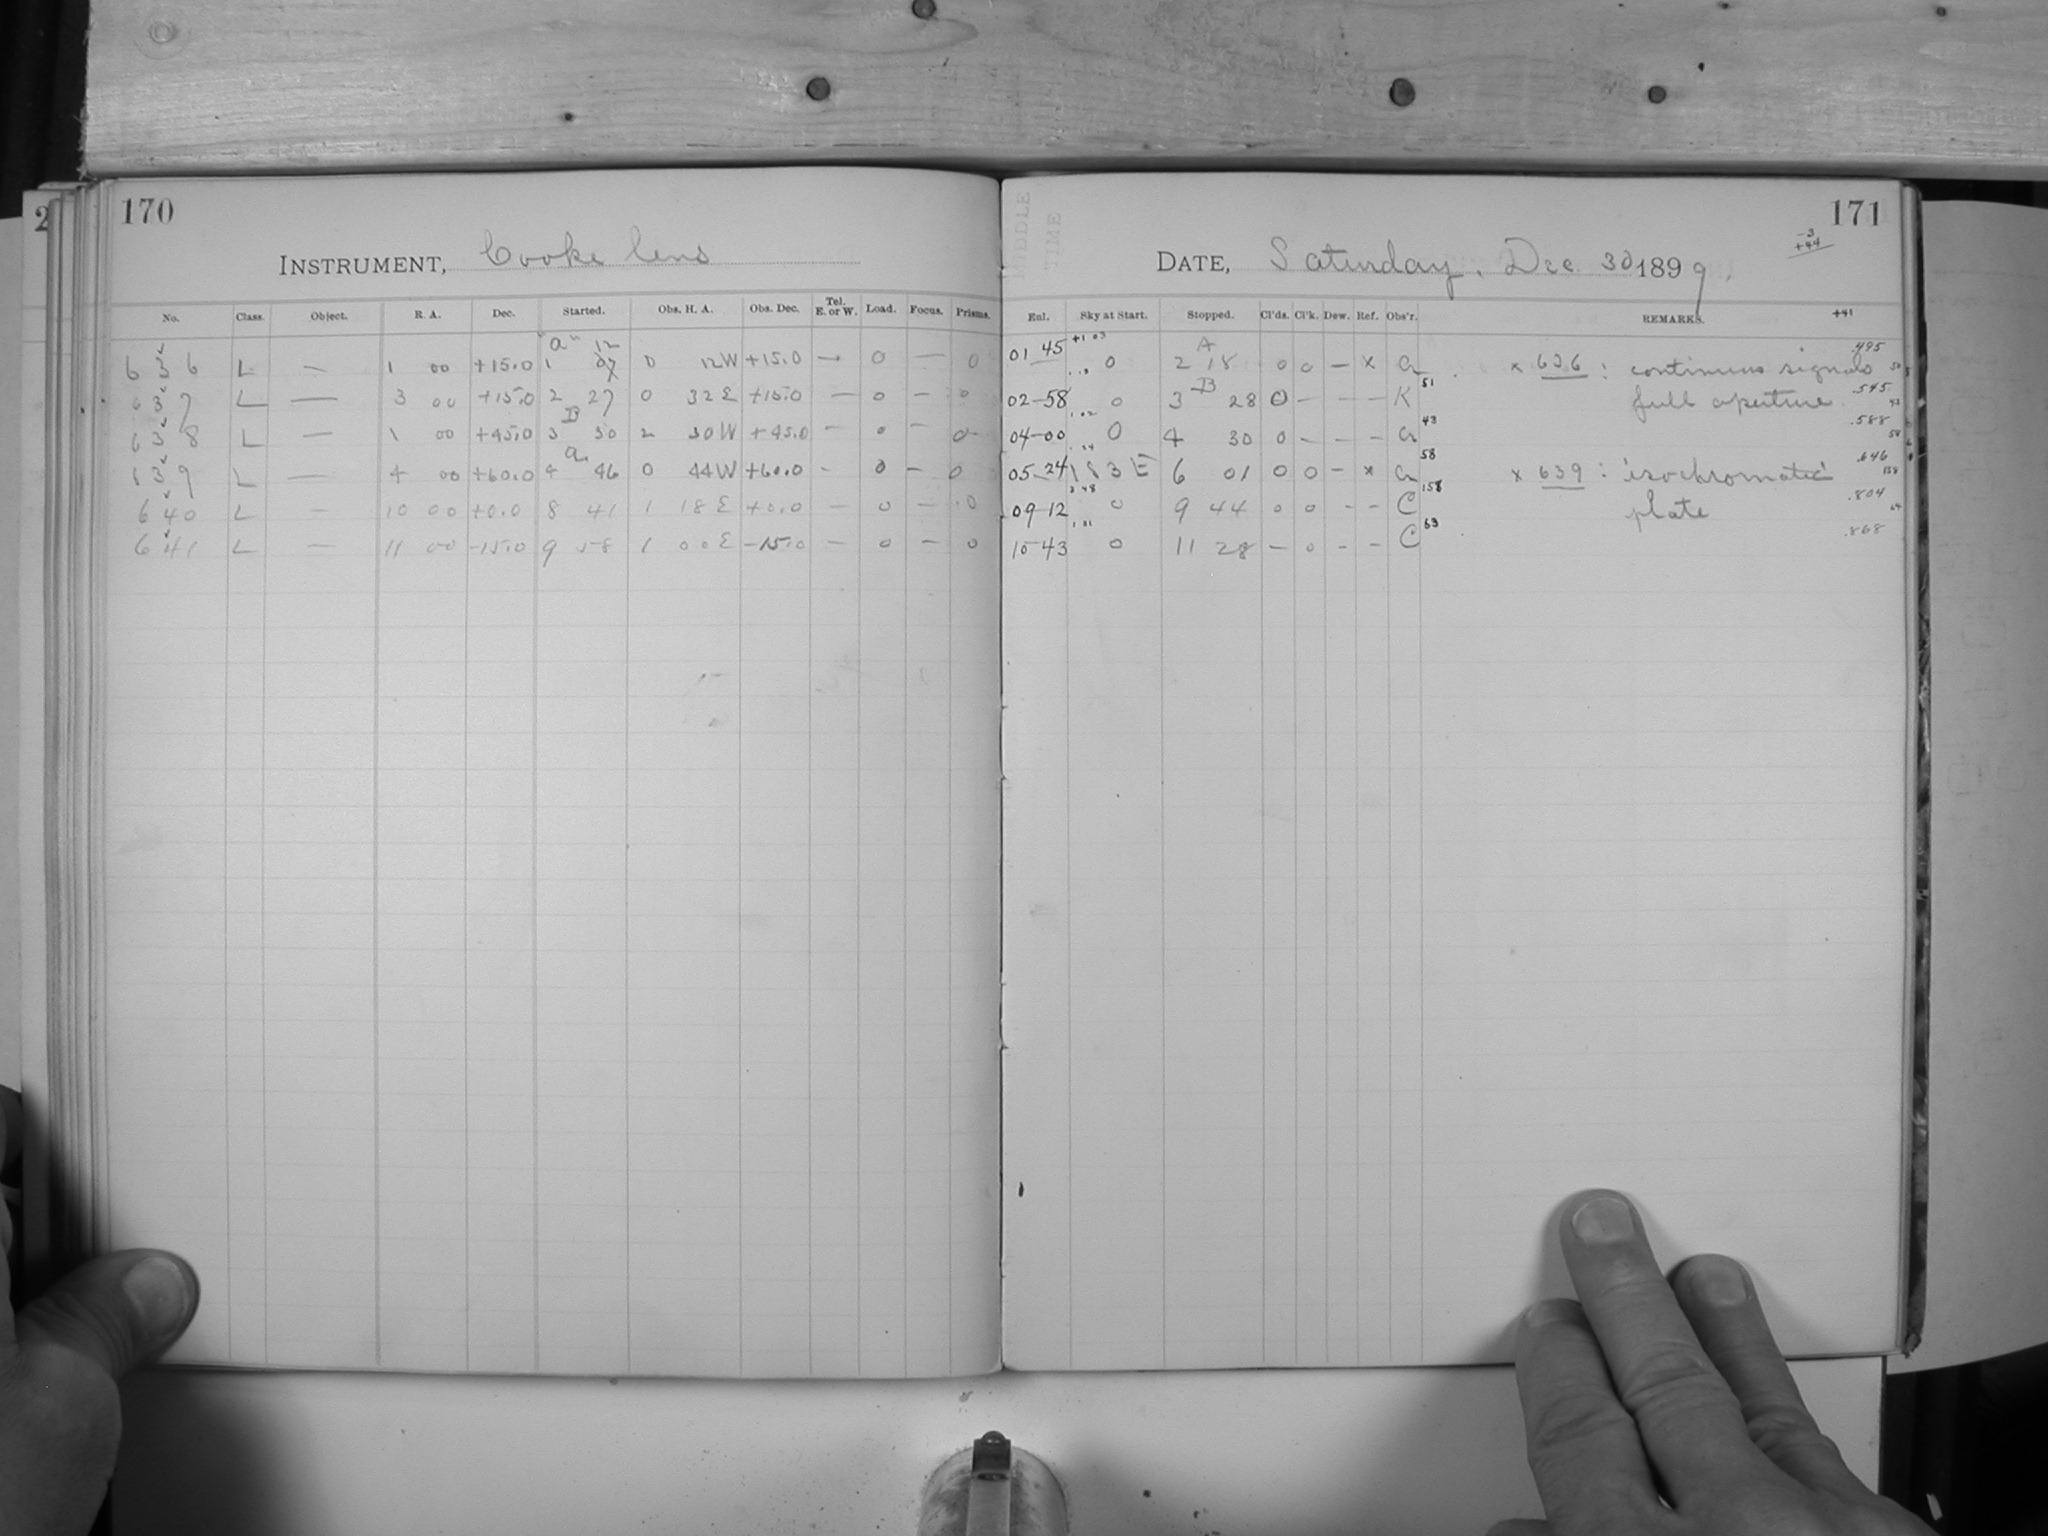 170
INSTRUMENT, Cooke lens
No. Class. Object. R. A. Dec. Started. Obs. H. A. Obs. Dec. Tel. E. or W. Load. Focus. Prisms.
"a" 12
636 L — 1 00 +15.0 1 0 12W +15.0 — 0 — 0
637 L — 3 00 +15.0 2 27 0 32E +15.0 — 0 — 0
B
638 L — 1 00 +45.0 3 30 2 30W +45.0 — 0 — 0
a
639 L — 4 00 +60.0 4 46 0 44W +60.0 - 0 — 0
640 L — 10 00 +0.0 8 41 1 18E +0.0 — 0 — 0
641 L — 11 00 -15.0 9 58 1 00E -15.0 — 0 — 0
171
MIDDLE
TIME
-3
+44
DATE, Saturday, Dec. 30 1899.
Enl. Sky at Start. Stopped. Cl'ds. Cl'k. Dew. Ref. Obs'r. REMARKS. +41
+1 03
A
.495
01 45 0 2 18 0 0 — x a x 636: continuous signals
51
B
.545
02-58 0 3 28 0 — — — K full aperture
1.02
43
.588
04-00 0 4 30 0 - - - a
58
.646
05-24 183E 6 01 0 0 - x a x 639: isochromatic
3 48
158
.804
09-12 0 9 44 0 0 - - C plate
1.31
63
.868
10-43 0 11 28 — 0 - - C